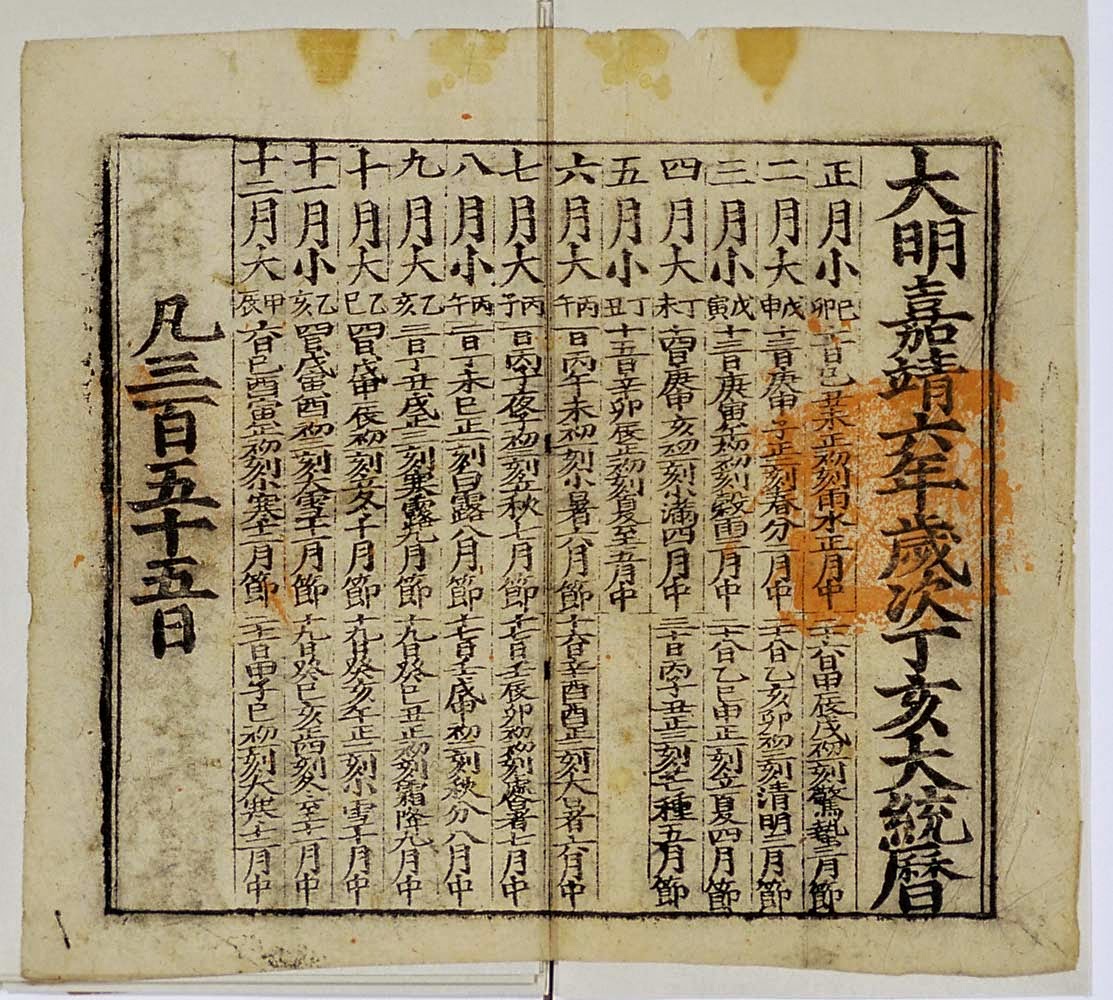 大明嘉靖六年歲次丁亥大統曆
正月小 己卯 十一日己丑未正初刻雨水正月中 二十六日甲辰戌初一刻驚蟄二月節
二月大 戊申 十三日庚申子正二刻春分二月中 二十八日乙亥卯初二刻清明三月節
三月小 戊寅 十三日庚寅午初初刻穀雨三月中 二十八日乙巳申正一刻立夏四月節
四月大 丁未 十四日庚申亥初初刻小滿四月中 三十日丙子丑正三刻芒種五月節
五月小 丁丑 十五日辛卯辰正初刻夏至五月中
六月大 丙午 一日丙午未初一刻小暑六月節 十六日辛酉酉正二刻大暑六月中
七月大 丙子 一日丙子夜子初三刻立秋七月節 十七日壬辰卯初初刻處暑七月中
八月小 丙午 二日丁未巳正一刻白露八月節 十七日壬戌申初二刻秋分八月中
九月大 乙亥 三日丁丑戌正二刻寒露九月節 十九日癸巳丑正初刻霜降九月中
十月大 乙巳 四日戊申辰初一刻立冬十月節 十九日癸亥午正二刻小雪十月中
十一月小 乙亥 四日戊寅酉初三刻大雪十一月節 十九日癸巳亥正四刻冬至十一月中
十二月大 甲辰 六日己酉寅正初刻小寒十二月節 二十一日甲子巳初一刻大寒十二月中
凡三百五十五日